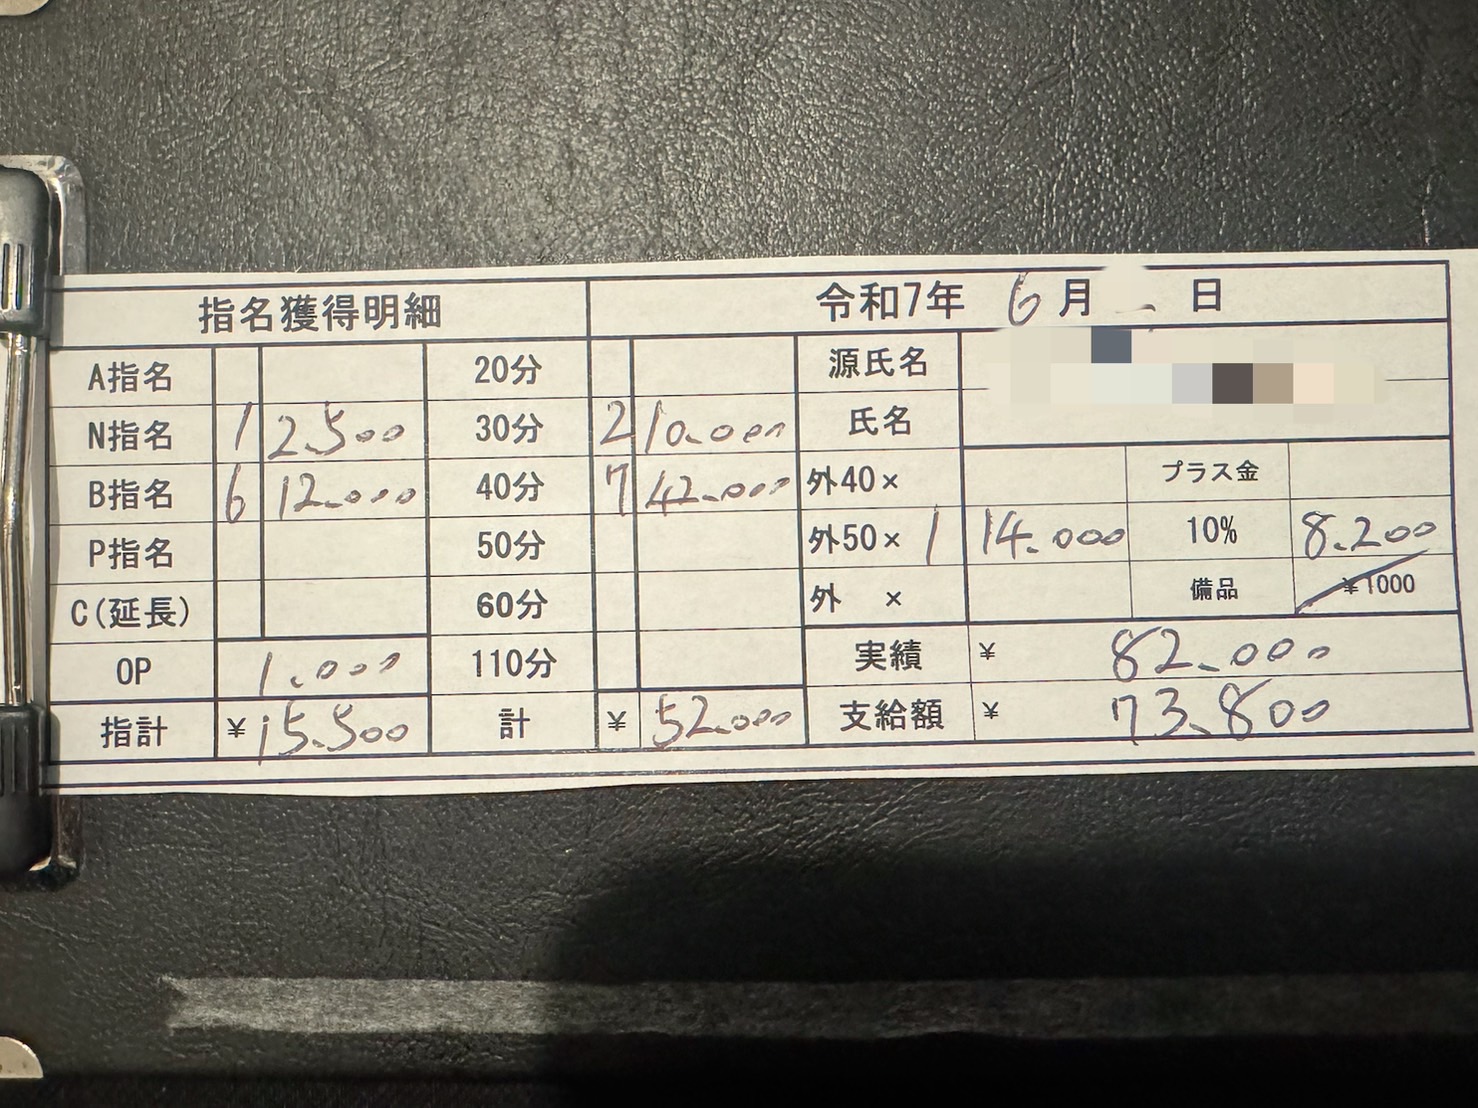 指名獲得明細 令和7年 6月 日
A指名 20分 源氏名
N指名 1 2.500 30分 2 10.000 氏名
B指名 6 12.000 40分 7 42.000 外40× プラス金
P指名 50分 外50× 1 14.000 10% 8.200
C(延長) 60分 外 × 備品 ¥1000
OP 1.000 110分 実績 ¥ 82.000
指計 ¥15.500 計 ¥ 52.000 支給額 ¥ 73.800